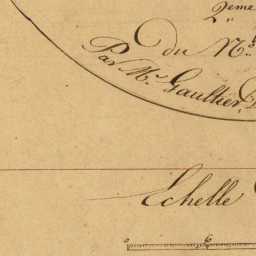 2.eme
du N.
Par M. Gaultier,
Echelle
0 6